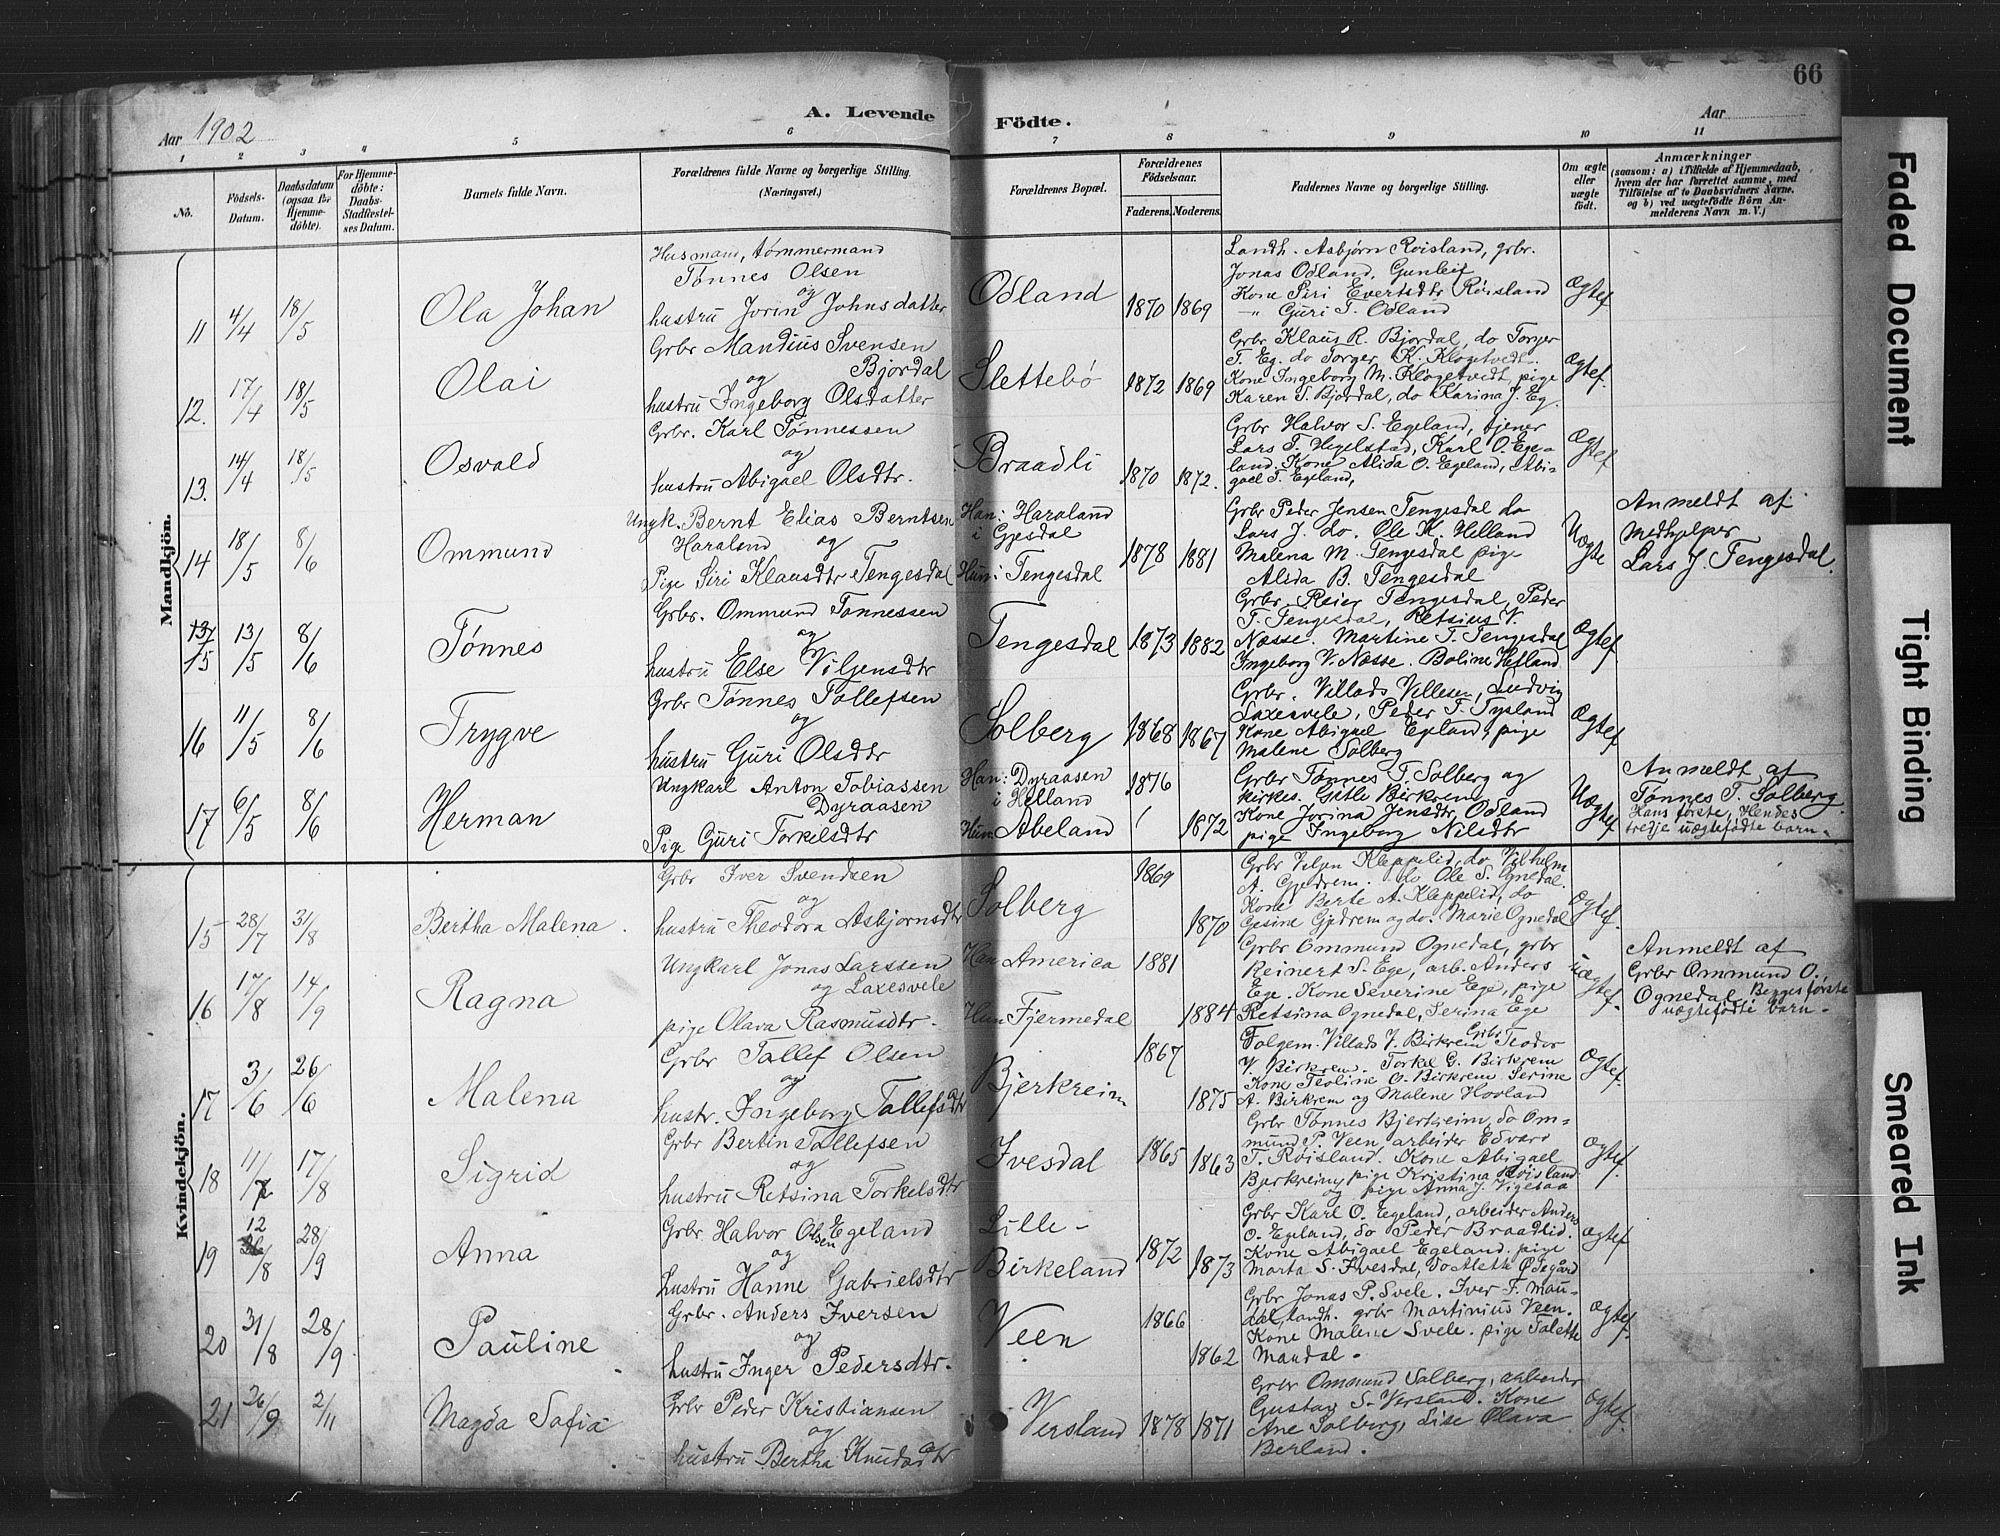 66
Aar 1902
A. Levende Födte.
Aar
1 2 3 4 5 6 7 8 9 10 11
Nô.
Födsels-Datum.
Daabsdatum (ogsaa för Hjemme-döbte).
For Hjemme-döbte: Daabs-Stadfæstel-ses Datum.
Barnets fulde Navn.
Forældrenes fulde Navne og borgerlige Stilling. (Næringsvei.)
Forældrenes Bopæl.
Forældrenes Födselsaar.
Faderens. Moderens.
Faddernes Navne og borgerlige Stilling.
Om ægte eller uægte födt.
Anmærkninger
(saasom: a) i Tilfælde af Hjemmedaab, hvem der har forrettet samme, med Tilföielse af to Daabsvidners Navne, og b) ved uægtefödte Börn An-melderens Navn m. V.)
Mandkjön.
11 4/4 18/5 Ola Johan
Husmand, tømmermand
Tønnes Olsen
og
hustru Jorin Johnsdatter
Odland 1870 1869
Landh. Asbjørn Røisland, grbr.
Jonas Odland, Gunleif
Kone Siri Evertsdtr Røisland
-"- Guri T. Odland
Ægtef
12. 17/4 18/5 Olai
Grbr Mandius Svensen
Bjordal
og
hustru Ingeborg Olsdatter
Slettebø 1872 1869
Grbr Klaus R. Bjordal, do Torger
T. Eg. do Torger K. Klogetvedt.
Kone Ingeborg M. Klogetvedt, pige
Karen S. Bjordal, do Karina J. Eg.
Ægtef.
13. 14/4 18/5 Osvald
Grbr. Karl Tønnessen
og
hustru Abigael Olsdtr.
Braadli 1870 1872.
Grbr Halvor S. Egeland, tjener
Lars T. Hegelstad, Karl O. Ege-
land. Kone Alida O. Egeland, Abi-
gael T. Egeland,
Ægtef
14 18/5 8/6 Ommund
Ungk. Bernt Elias Berntsen
Haraland og
Pige Siri Klausdtr Tengesdal
Han: Haraland
i Gjesdal
Hun: Tengesdal
1878 1881
Grbr Peder Jensen Tengesdal do
Lars J. do. Ole K. Helland
Malena M. Tengesdal pige
Alida B. Tengesdal
Uægte
Anmeldt af
Medhjelper
Lars J. Tengesdal.
15 13/5 8/6 Tønnes
Grbr. Ommund Tønnessen
og
hustru Else Viljensdtr
Tengesdal 1873 1882
Grbr. Reier Tengesdal, Peder
T. Tengesdal, Retsius V.
Næsse. Martine T. Tengesdal
Ingeborg V. Næsse. Boline Helland
Ægtef
16 11/5 8/6 Trygve
Grbr Tønnes Tollefsen
og
hustru Guri Olsdtr
Solberg 1868 1867
Grbr. Villads Villesen, Ludvig
Laxesvele, Peder T. Tysland
Kone Abigael Egeland, pige
Malene Solberg
Ægtef
17 6/5 8/6 Herman
Ungkarl Anton Tobiassen
Dyraasen
Pige Guri Torkelsdtr
Han: Dyraasen
i Helland
Hun Abeland
1876 1872
Grbr Tønnes T. Solberg og
kirkes. Gitle Birkrem
Kone Jorina Jensdtr, Odland
pige Ingeborg Nilsdtr
Uægtef
Anmeldt af
Tønnes T. Solberg
Hans første, Hendes
tredje uægtefødte barn.
Kvindekjön.
15 28/7 31/8 Bertha Malena.
Grbr Iver Svendsen
og
hustru Theodora Asbjørnsdtr
Solberg 1869 1870
Grbr Veljen Kleppelid, do Vilhelm
A. Gjedrem. do Ole S. Ognedal.
Kone Berte A. Kleppelid, do
Gesine Gjedrem og do. Marie Ognedal
Ægtef.
16 17/8 14/9 Ragna
Ungkarl Jonas Larssen
og Laxesvele
pige Olava Rasmusdtr.
Han America
Hun Fjermedal
1881 1884
Grbr Ommund Ognedal, grbr
Reinert S. Ege, arb. Anders
Ege. Kone Severine Ege, pige
Retsina Ognedal, Serina Ege
uægtef.
Anmeldt af
Grbr Ommund O.
Ognedal Begges første
uægtefødte barn.
17 3/6 26/6 Malena
Grbr Tollef Olsen
og
hustr. Ingeborg Tollefsdtr
Bjerkreim 1867 1875
Folgem. Villads V. Birkrem Grbr Teodor
V. Birkrem. Torkel G. Birkrem
Kone Teoline O. Birkrem Serine
A. Birkrem og Malene Hovland
Ægtef.
18 11/7 17/8 Sigrid
Grbr Bertin Tollefsen
og
hustru Retsina Torkelsdtr
Ivesdal 1865 1863
Grbr Tønnes Bjerkreim, do Om-
mund P. Veen, arbeider Edvard
T. Røisland. Kone Abigael
Bjerkreim, pige Kristina Røisland
og pige Anna J. Vigesaa
Ægtef.
19 12/8 28/9 Anna
Grbr. Halvor Olsen Egeland
og
hustru Hanne Gabrielsdtr
Lille-
Birkeland 1872 1873
Grbr Karl O. Egeland, arbeider Anders
O. Egeland, do Peder Braadlid.
Kone Abigael Egeland. pige
Marta S. Ivesdal, do Aleth Ødegård
Ægtef
20 31/8 28/9 Pauline
Grbr. Anders Iversen
og
hustru Inger Pedersdtr.
Veen 1866 1862
Grbr Jonas P. Svele. Iver F. Mau-
dal, landh. grbr Martinius Veen.
Kone Malene Svele. pige Talette
Maudal.
Ægtef.
21 26/9 2/11 Magda Sofia
Grbr Peder Kristiansen
og
hustru Bertha Knudsdtr
Versland 1878 1871
Grbr Ommund Solberg, arbeider
Gustav S. Versland. Kone
Ane Solberg, Lise Olava
Berland.
Ægtef.
Faded Document
Tight Binding
Smeared Ink